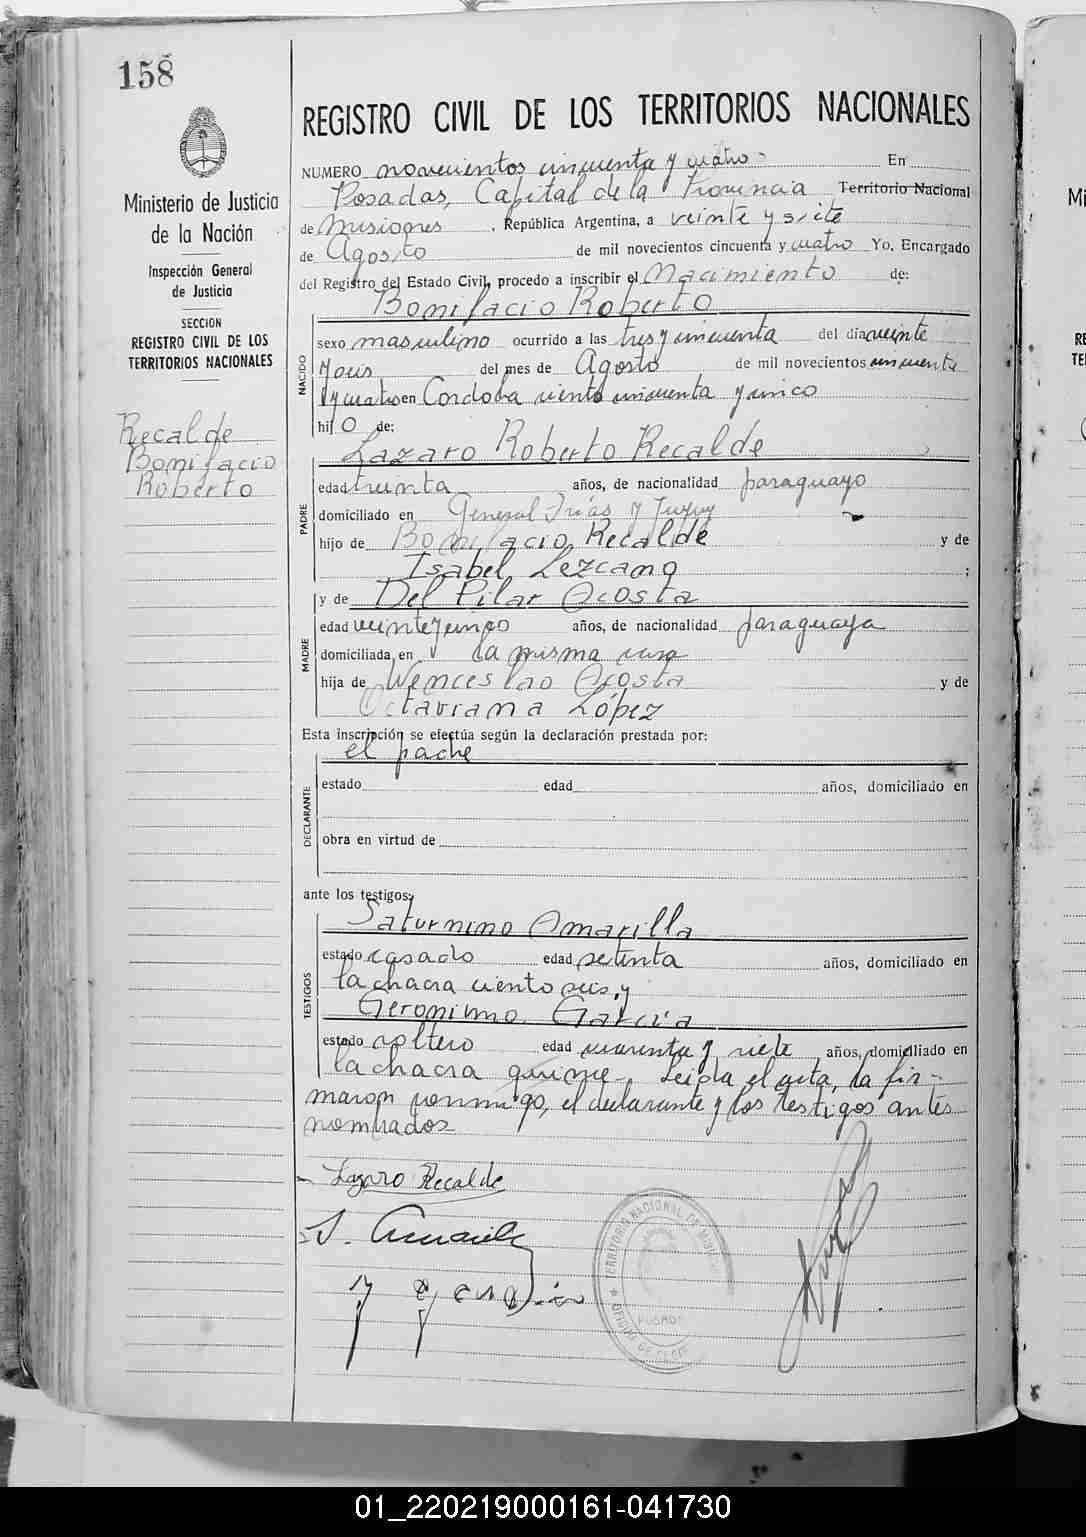 158
Ministerio de Justicia
de la Nación
Inspección General
de Justicia
SECCION
REGISTRO CIVIL DE LOS
TERRITORIOS NACIONALES
Recalde
Bonifacio
Roberto
REGISTRO CIVIL DE LOS TERRITORIOS NACIONALES
NUMERO novecientos cincuenta y cuatro - En
Posadas, Capital de la Provincia Territorio Nacional
de Misiones, República Argentina, a veinte y siete
de Agosto de mil novecientos cincuenta y cuatro Yo, Encargado
del Registro del Estado Civil, procedo a inscribir el Nacimiento de:
Bonifacio Roberto
NACIDO
sexo masculino ocurrido a las tres y cincuenta del dia veinte
y seis del mes de Agosto de mil novecientos cincuenta
y cuatro en Cordoba ciento cincuenta y cinco
hijo de:
Lazaro Roberto Recalde
PADRE
edad treinta años, de nacionalidad paraguayo
domiciliado en General Frías y Jujuy
hijo de Bonifacio Recalde y de
Isabel Lezcano ;
y de Del Pilar Acosta
MADRE
edad veinte y cinco años, de nacionalidad paraguaya
domiciliada en la misma casa
hija de Wenceslao Acosta y de
Octaviana López
Esta inscripción se efectúa según la declaración prestada por:
el padre
DECLARANTE
estado edad años, domiciliado en
obra en virtud de
ante los testigos:
Saturnino Amarilla
TESTIGOS
estado casado edad setenta años, domiciliado en
la chacra ciento seis, y
Geronimo Garcia
estado soltero edad cuarenta y siete años, domiciliado en
la chacra quince. Leida el acta, la fir-
maron conmigo, el declarante y los testigos antes
nombrados
Lazaro Recalde
S. Amarilla
TERRITORIO NACIONAL DE MISIONES
POSADAS
01_220219000161-041730